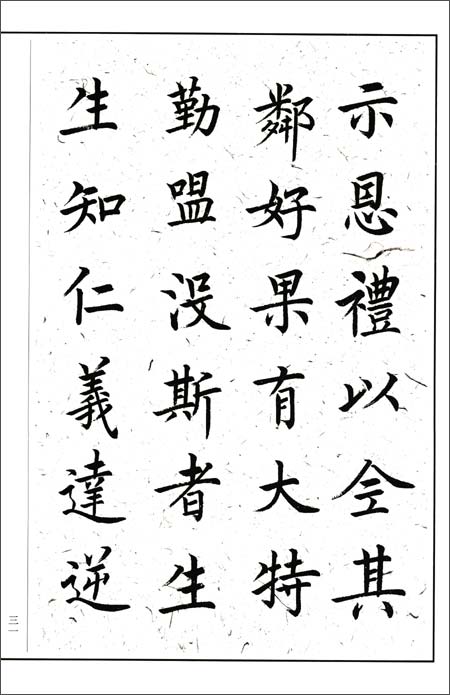 示恩禮以全其
鄰好果有大特
勤嗢没斯者生
生知仁義達逆
三一